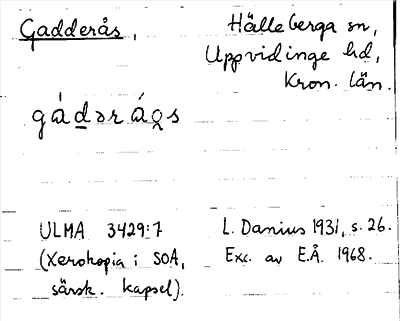 Gadderås,
Hälleberga sn,
Uppvidinge hd,
Kron. län.
gádərágs
ULMA 3429:7
(Xerokopia i SOA,
särsk. kapsel).
L. Danius 1931, s. 26.
Exc. av E.Å. 1968.